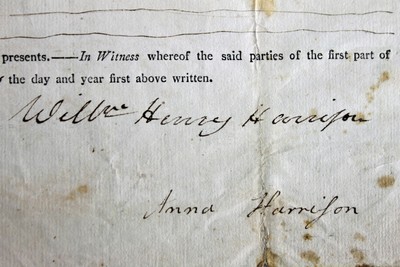 presents.——In Witness whereof the said parties of the first part of
the day and year first above written.
Willm Henry Harrison
Anna Harrison